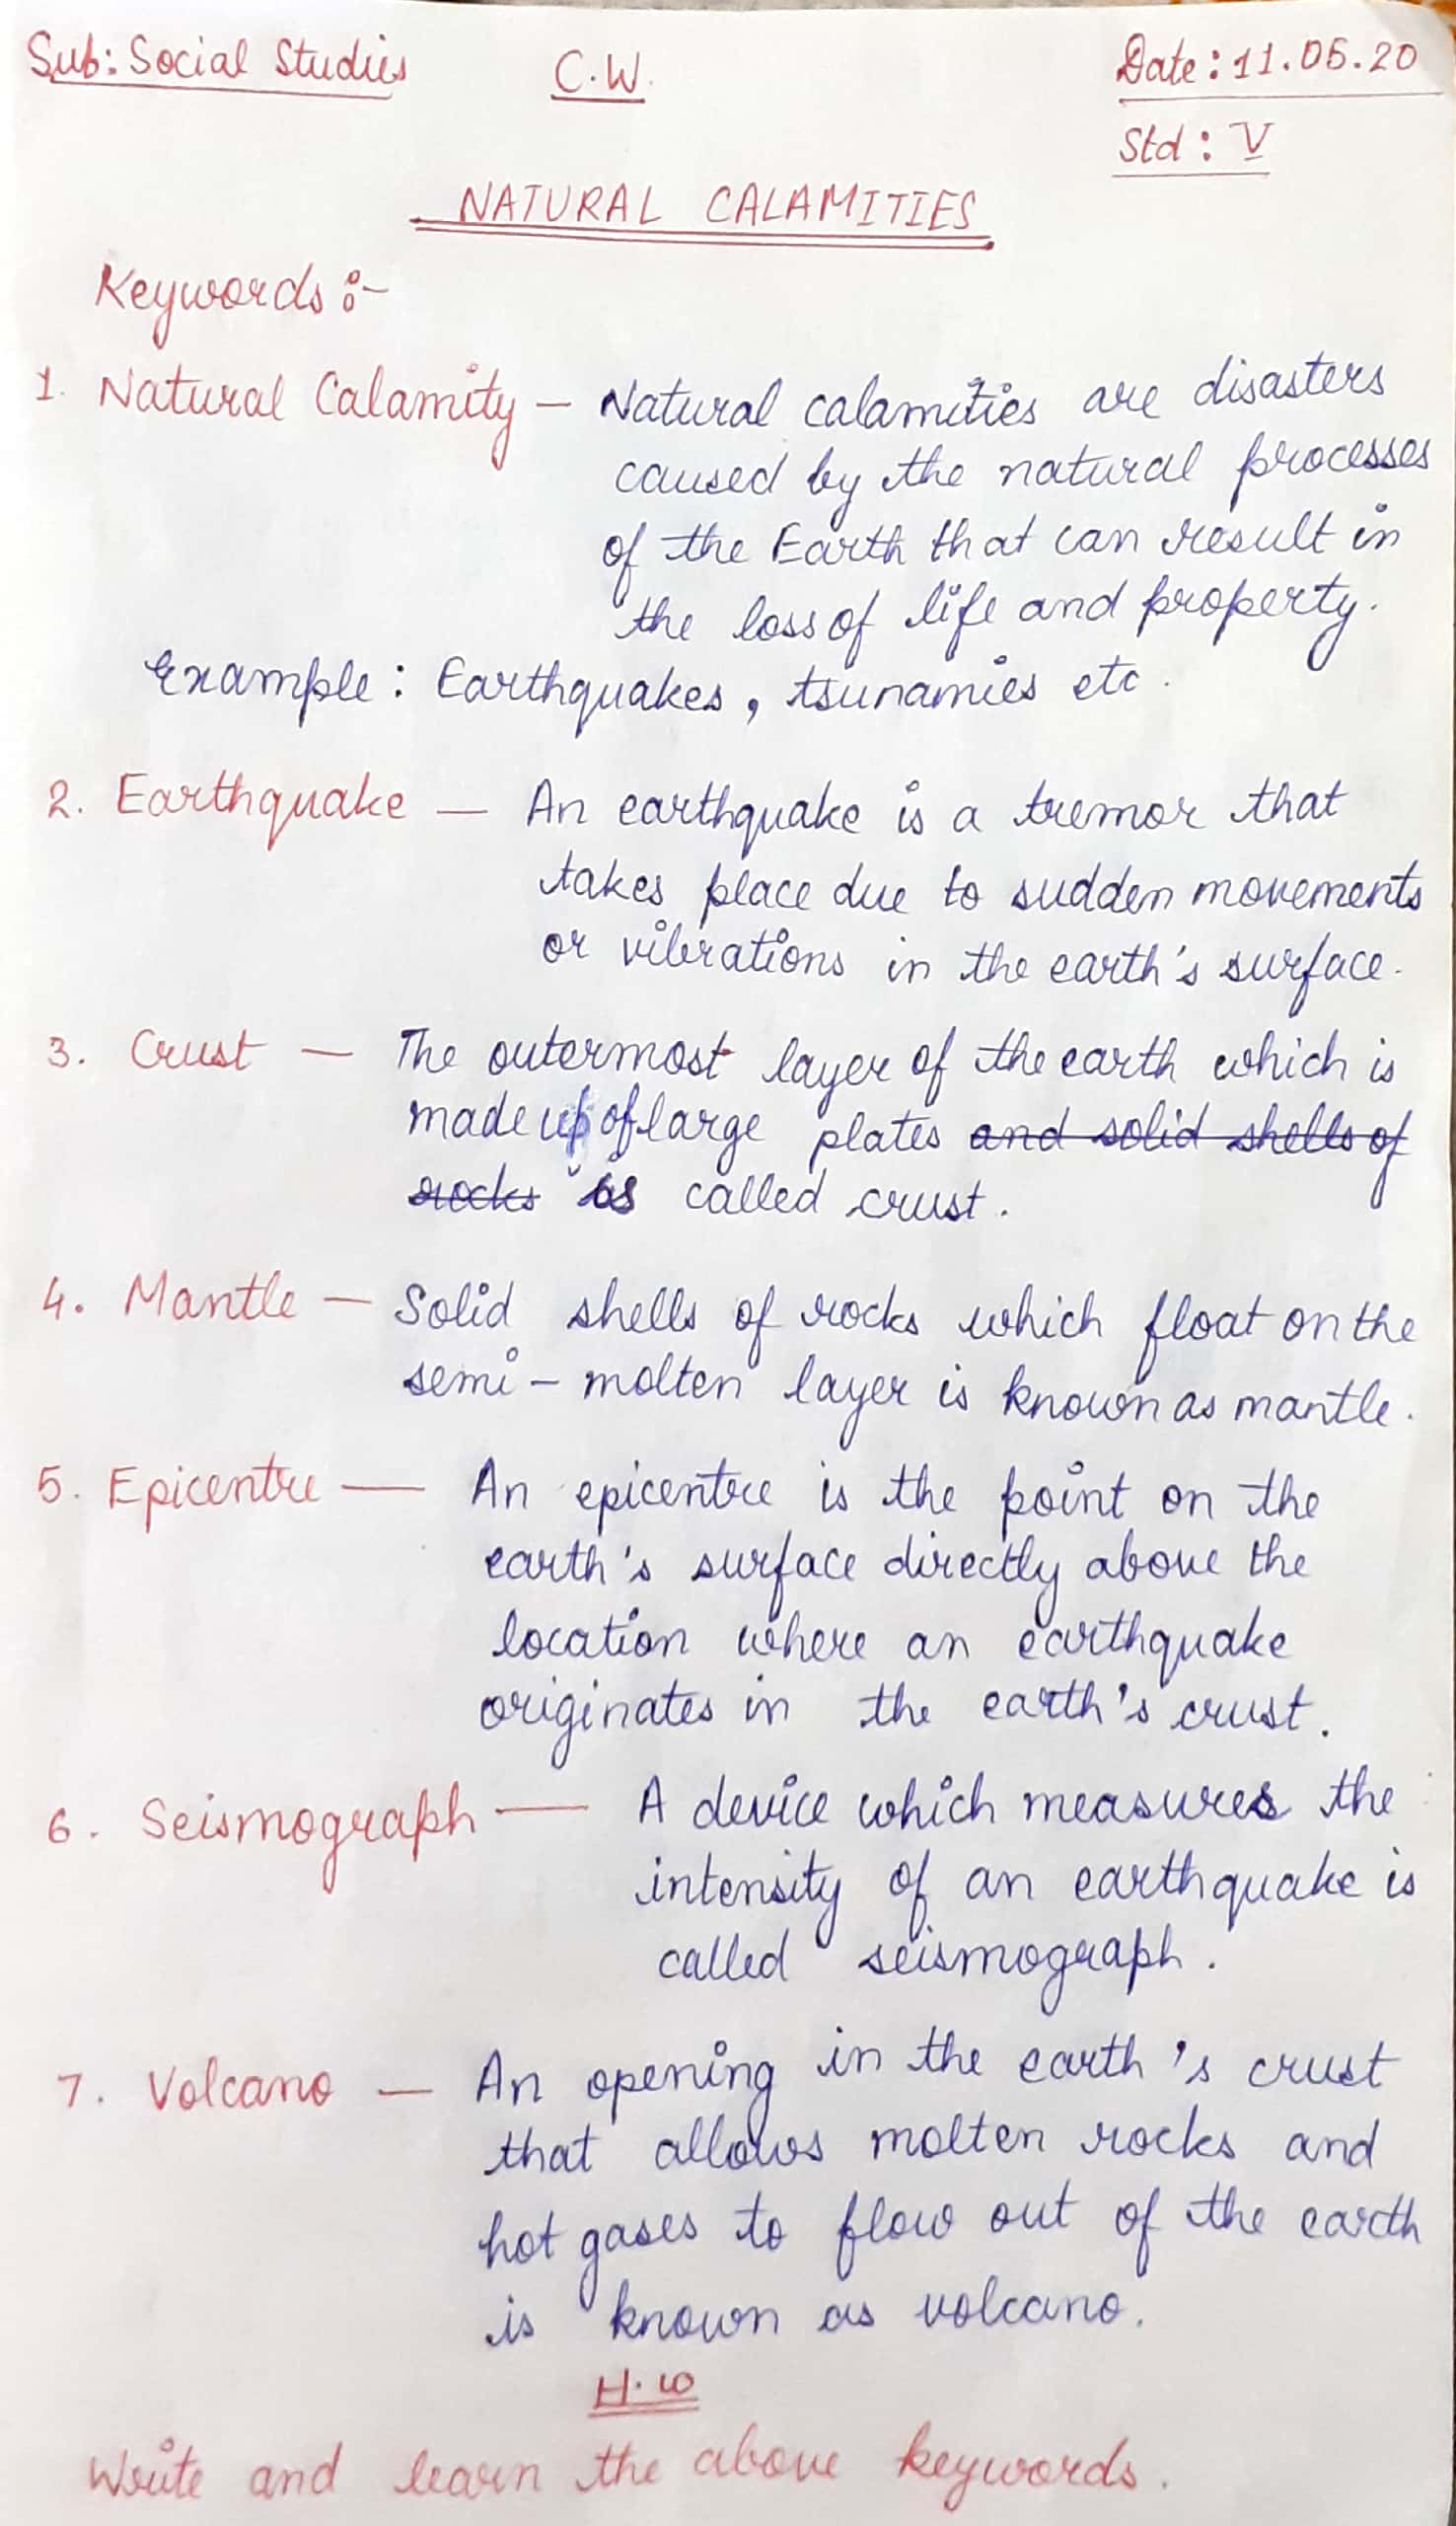 Sub: Social Studies C.W. Date: 11.05.20
Std: V
NATURAL CALAMITIES
Keywords :-
1. Natural Calamity — Natural calamities are disasters
caused by the natural processes
of the Earth that can result in
the loss of life and property.
Example : Earthquakes, tsunamies etc.
2. Earthquake — An earthquake is a tremor that
takes place due to sudden movements
or vibrations in the earth's surface.
3. Crust — The outermost layer of the earth which is
made up of large plates and solid shells of
rocks is called crust.
4. Mantle — Solid shells of rocks which float on the
semi-molten layer is known as mantle.
5. Epicentre — An epicentre is the point on the
earth's surface directly above the
location where an earthquake
originates in the earth's crust.
6. Seismograph — A device which measures the
intensity of an earthquake is
called seismograph.
7. Volcano — An opening in the earth's crust
that allows molten rocks and
hot gases to flow out of the earth
is known as volcano.
H.W
Write and learn the above keywords.